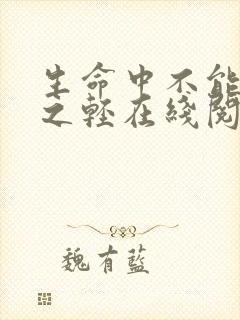 生命中不能
之輕在綫閱
魏有藍